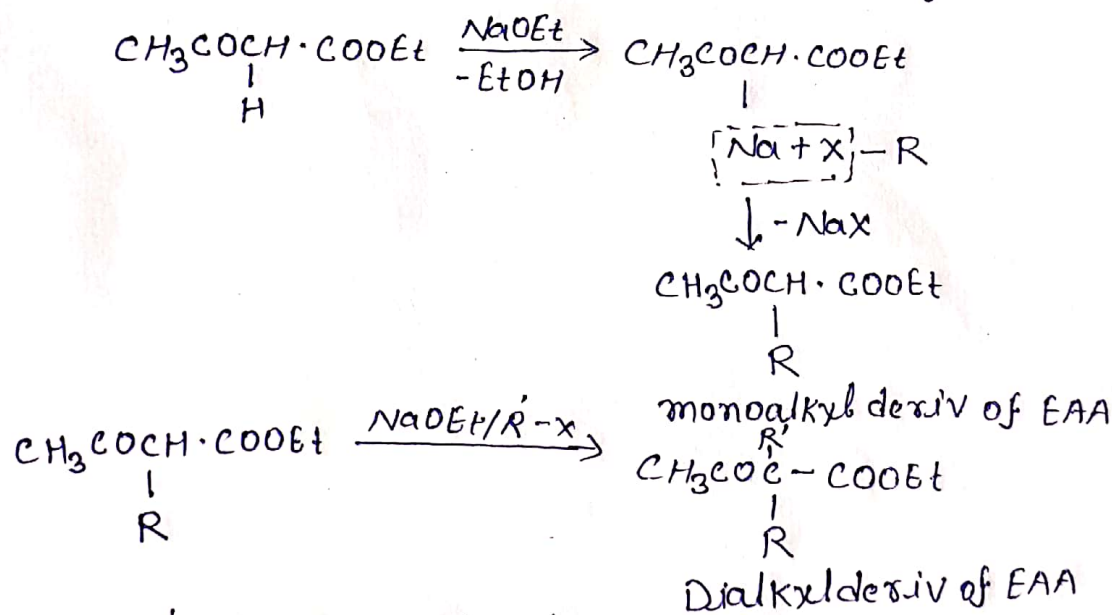 CH₃COCH·COOEt NaOEt CH₃COCH·COOEt
-EtOH
|
H
|
Na + X - R
↓ - NaX
CH₃COCH· COOEt
|
R
monoalkyl deriv of EAA
CH₃COCH·COOEt NaOEt/R'-X
|
R
R'
CH₃COC - COOEt
|
R
Dialkyl deriv of EAA